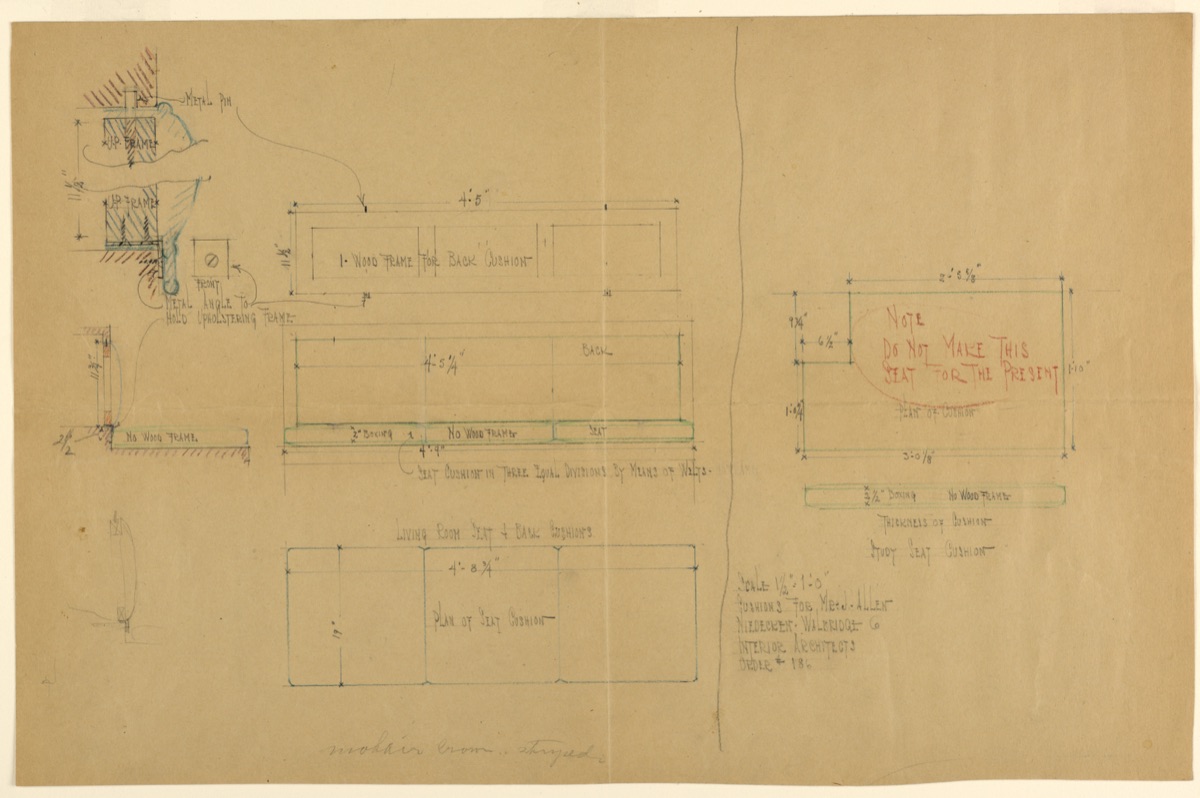 METAL PIN
UP. FRAME
11 1/2"
UP. FRAME
FRONT
METAL ANGLE TO
HOLD UPHOLSTERING FRAME
4'-5"
11 1/2"
1- WOOD FRAME FOR BACK CUSHION
BACK
4'-5 1/4"
11 3/4"
2 1/2
NO WOOD FRAME.
BOXING
NO WOOD FRAME
SEAT
4'-9"
SEAT CUSHION IN THREE EQUAL DIVISIONS BY MEANS OF WELTS.
LIVING ROOM SEAT & BACK CUSHIONS
4'-8 3/4"
PLAN OF SEAT CUSHION
19"
mohair brown.. striped
6 1/2"
NOTE
DO NOT MAKE THIS
SEAT FOR THE PRESENT
1'-10"
PLAN OF CUSHION
3'-0 1/8"
BOXING
NO WOOD FRAME
THICKNESS OF CUSHION
STUDY SEAT CUSHION
SCALE 1 1/2"-1'-0"
CUSHIONS FOR MR. J. ALLEN
NIEDECKEN-WALBRIDGE Co
INTERIOR ARCHITECTS
ORDER # 186